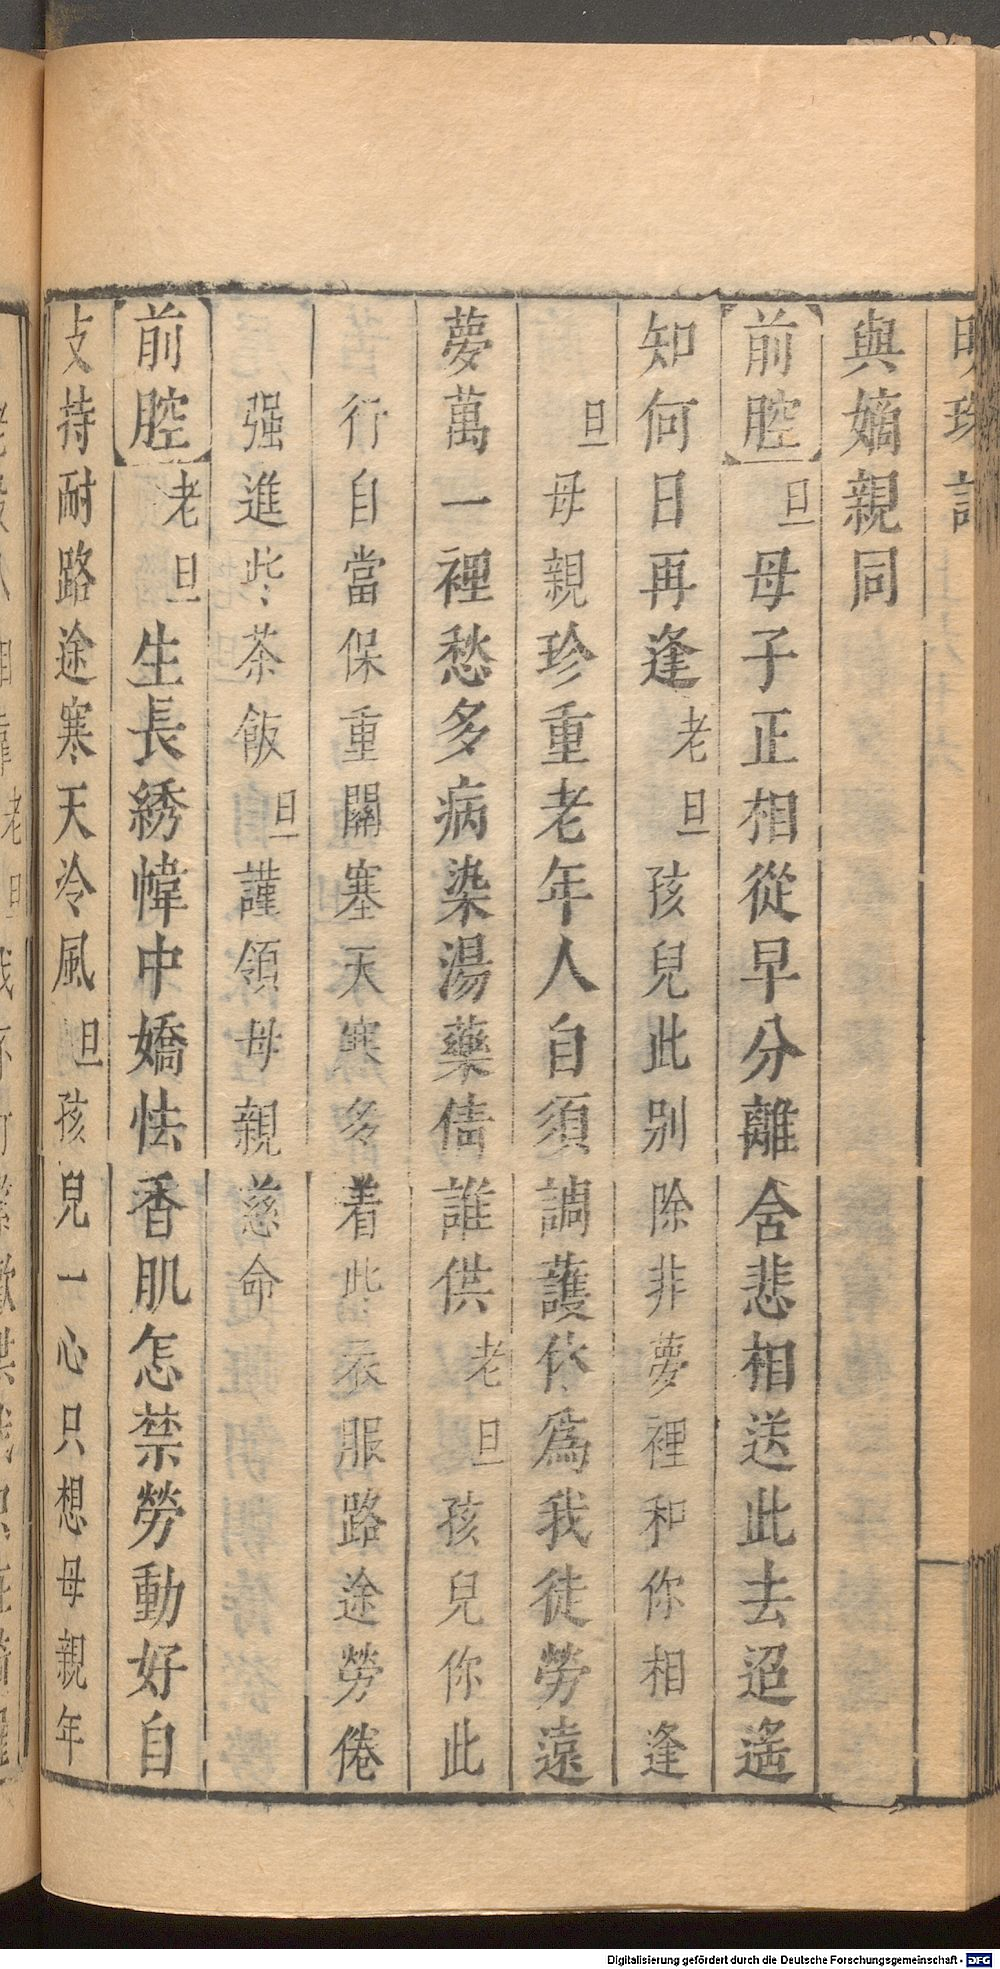 明珠記
與嫡親同
前腔旦母子正相從早分離含悲相送此去迢遙
知何日再逢老旦孩兒此別除非夢裡和你相逢
旦母親珍重老年人自須調護休爲我徒勞遠
夢萬一裡愁多病染湯藥倩誰供老旦孩兒你此
行自當保重關塞天寒多着些衣服路途勞倦
强進些茶飯旦謹領母親慈命
前腔老旦生長綉幃中嬌怯香肌怎禁勞動好自
支持耐路途寒天冷風旦孩兒一心只想母親年
Digitalisierung gefördert durch die Deutsche Forschungsgemeinschaft - DFG